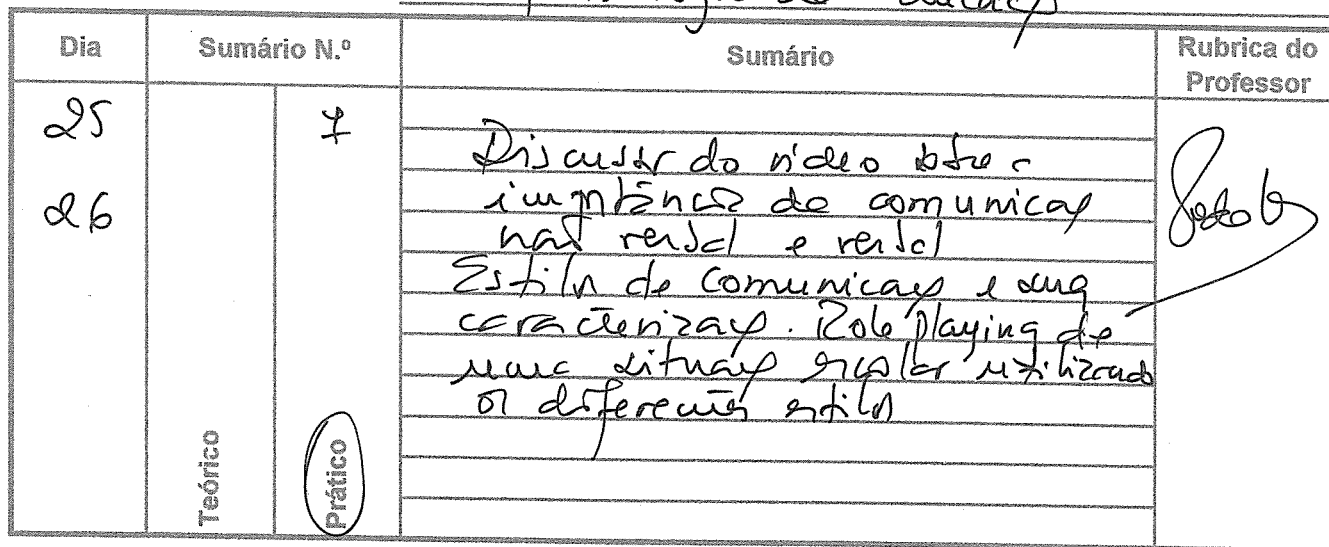 Dia
Sumário N.º
Sumário
Rubrica do
Professor
25
7
Discussão do vídeo sobre a
26
importância da comunicação
não verbal e verbal
Estilos de comunicação e sua
caracterização. Role playing de
uma situação escolar utilizando
os diferentes estilos
Teórico
Prático